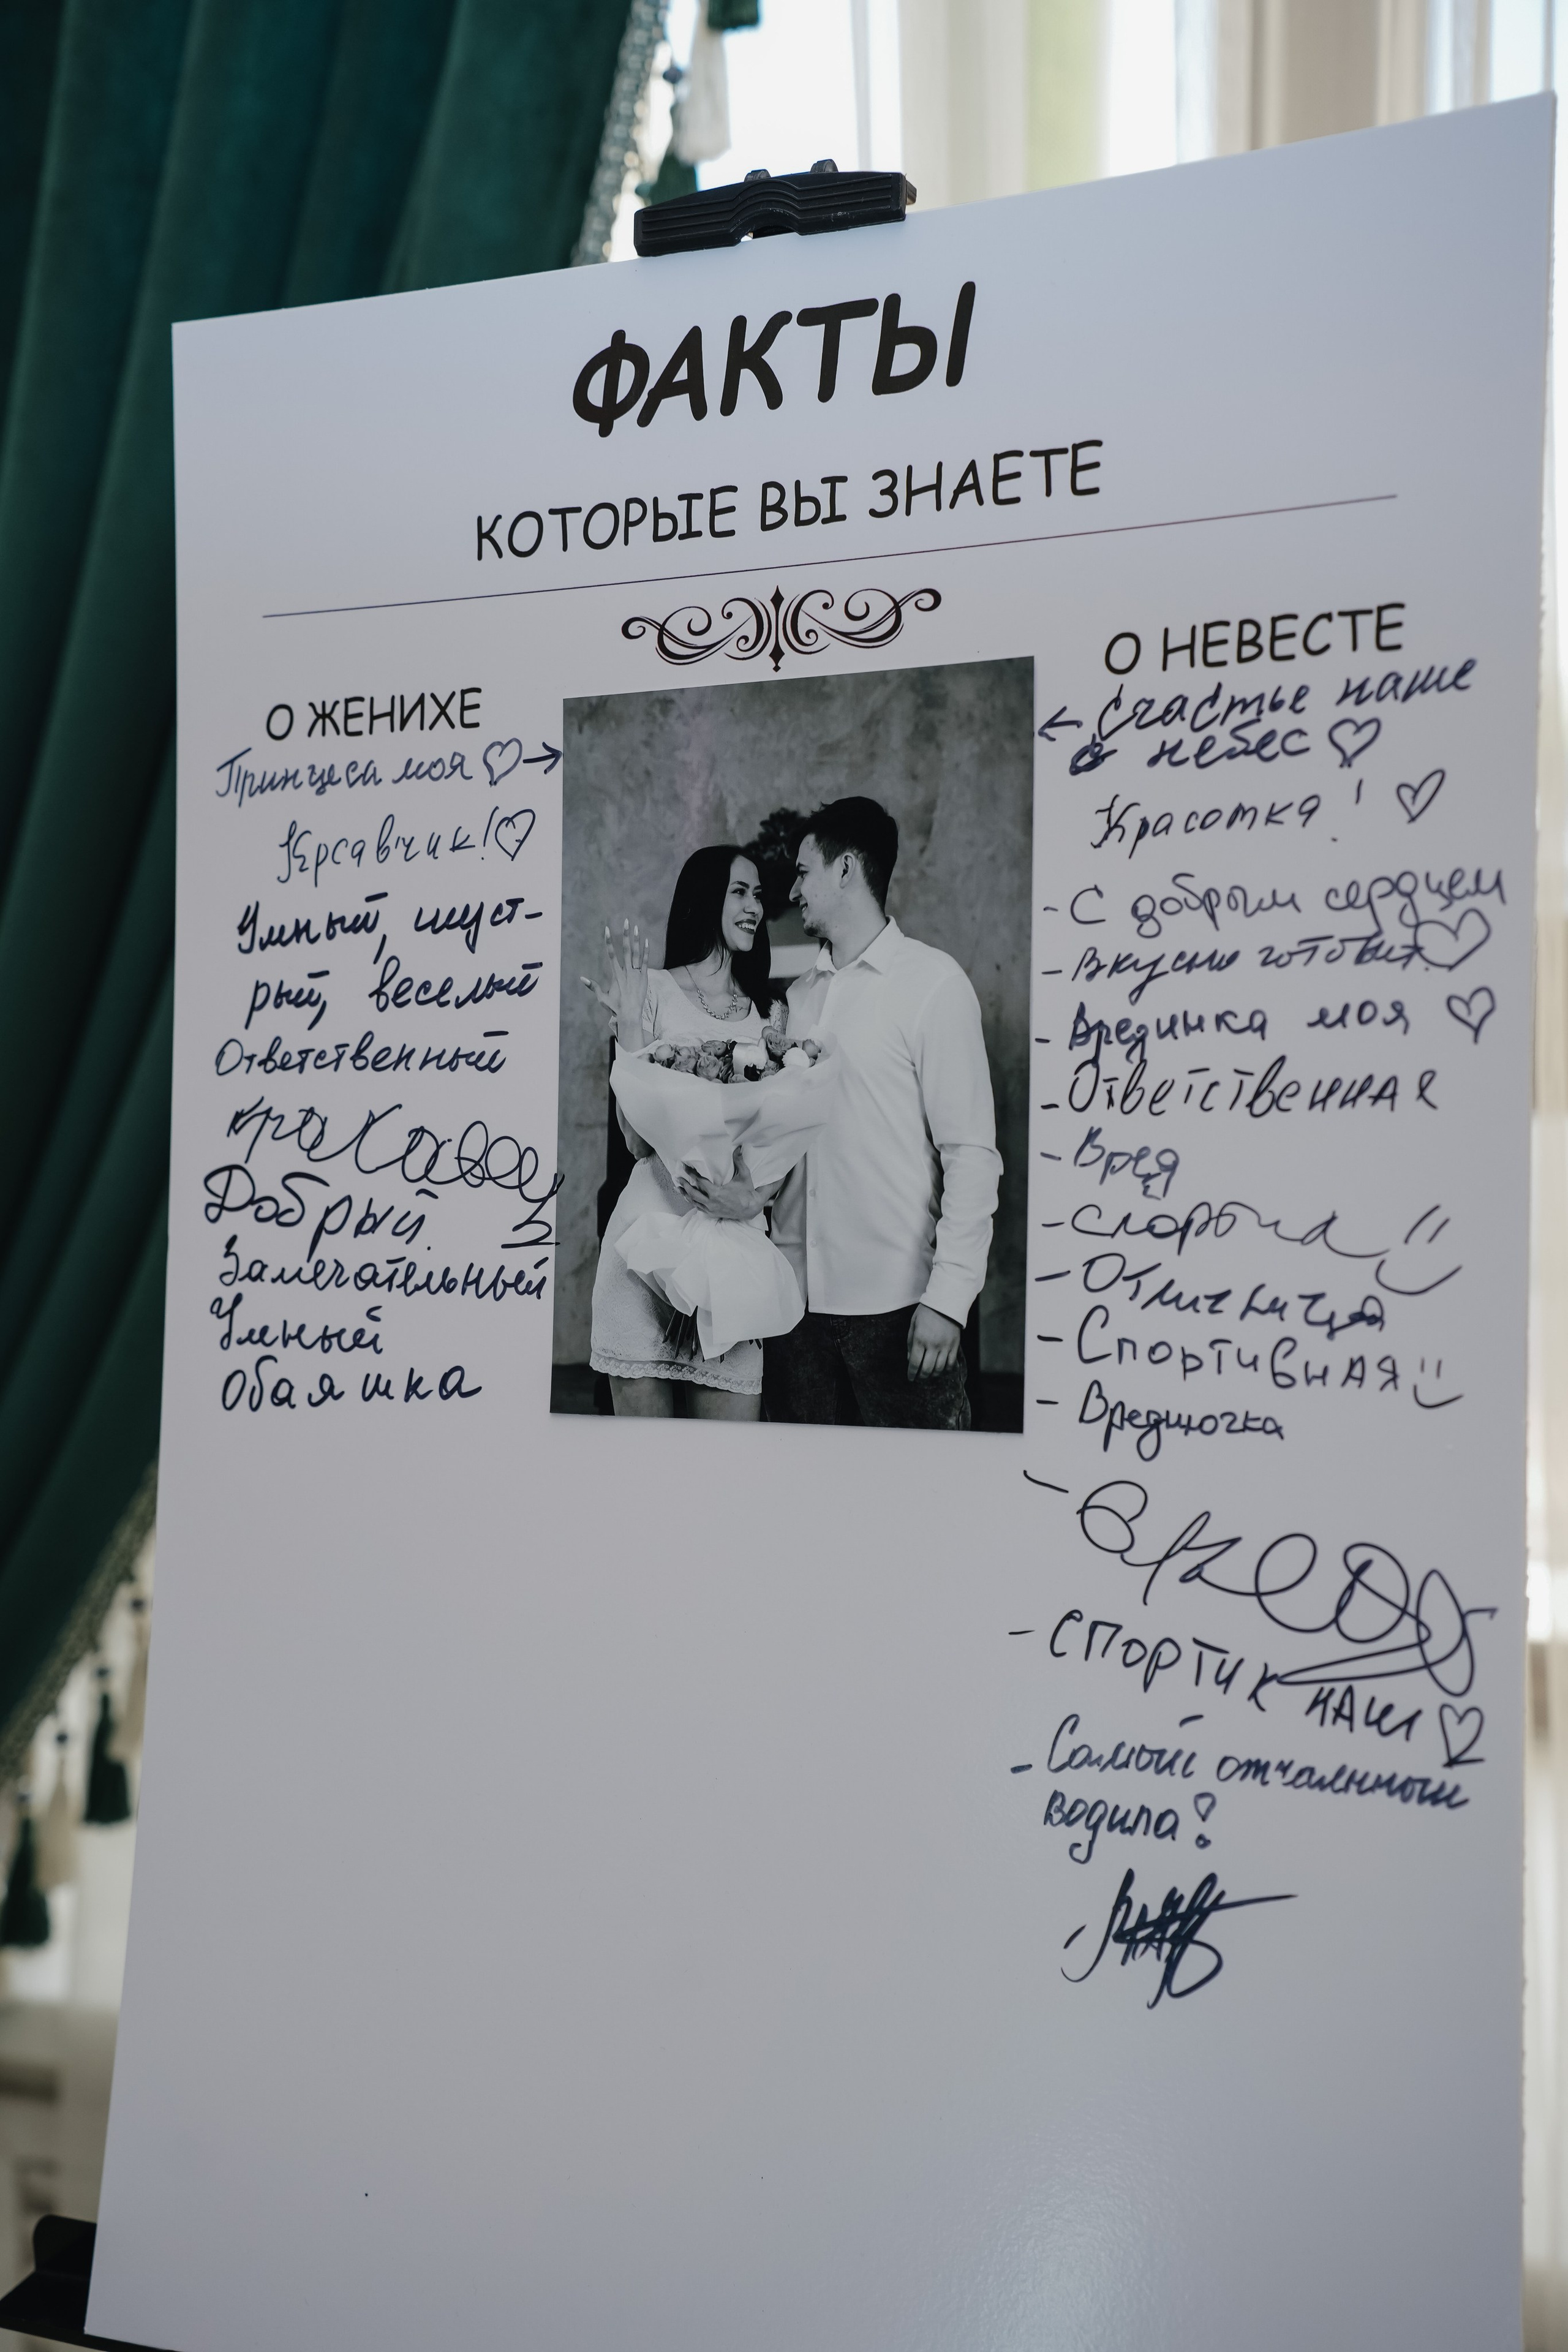 ФАКТЫ
КОТОРЫЕ ВЫ ЗНАЕТЕ
О ЖЕНИХЕ
Принцеса моя ♡→
Крсавчик!♡
Умный, шуст-
рый, веселый
Ответственный
Добрый
Замечательный
Умный
Обаяшка
О НЕВЕСТЕ
← Счастье наше
с небес ♡
Красотка! ♡
- С добрым сердцем
- Вкусно готовит ♡
- Врединка моя ♡
- Ответственная
- Отличница
- Спортивная
- Вредиючка
- Спортик
наш ♡
- Самый отчаянный
водила!